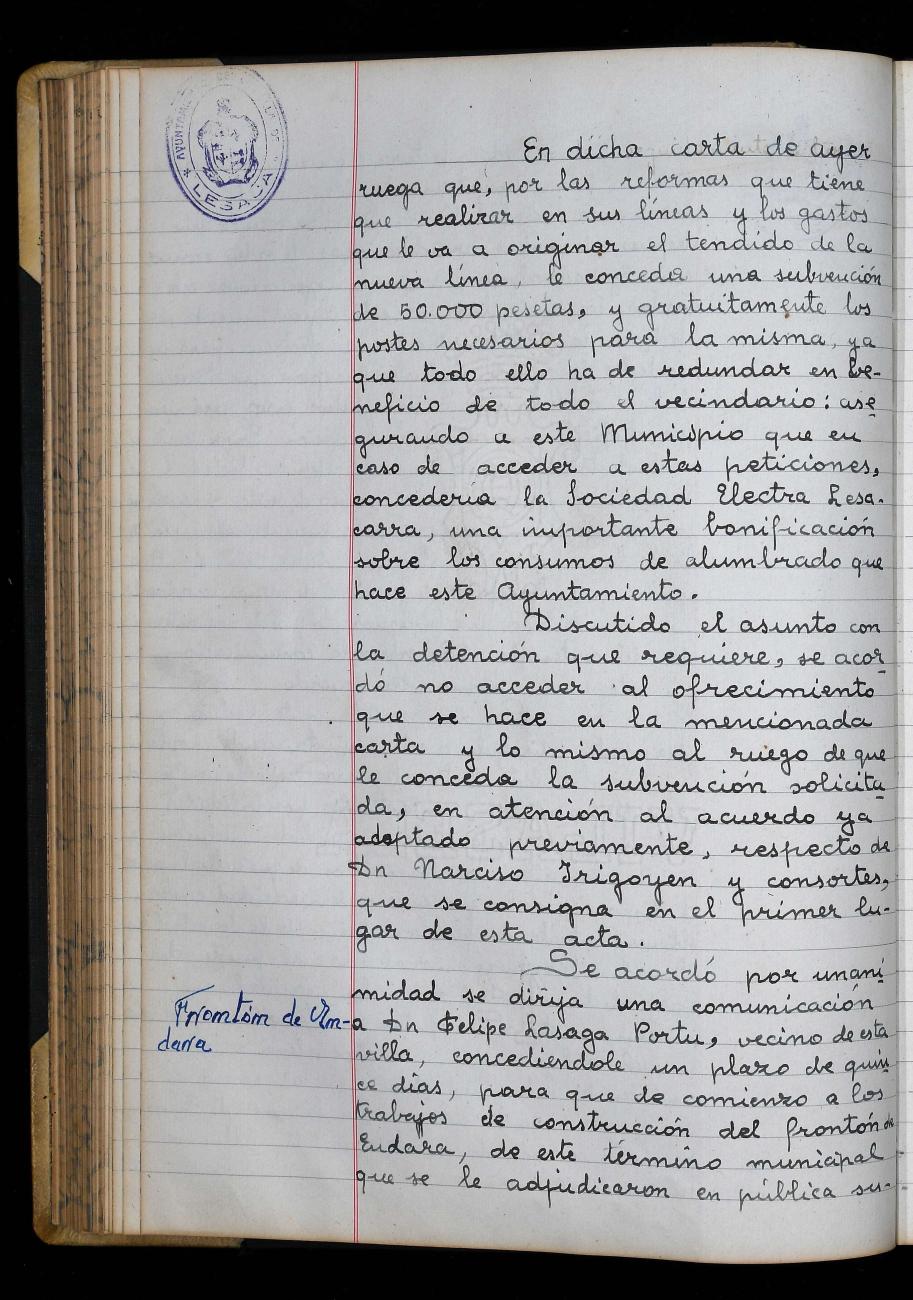 AYUNTAMI LA DE
* LESACA *
En dicha carta de ayer
ruega que, por las reformas que tiene
que realizar en sus líneas y los gastos
que le va a originar el tendido de la
nueva línea, le conceda una subvención
de 50.000 pesetas, y gratuitamente los
postes necesarios para la misma, ya
que todo ello ha de redundar en be-
neficio de todo el vecindario: ase
gurando a este Municipio que en
caso de acceder a estas peticiones,
concedería la Sociedad Electra Lesa-
carra, una importante bonificación
sobre los consumos de alumbrado que
hace este Ayuntamiento.
Discutido el asunto con
la detención que requiere, se acor
dó no acceder al ofrecimiento
que se hace en la mencionada
carta y lo mismo al ruego de que
le conceda la subvención solicita
da, en atención al acuerdo ya
adoptado previamente, respecto de
Dn Narciso Irigoyen y consortes,
que se consigna en el primer lu-
gar de esta acta.
Se acordó por unani
midad se dirija una comunicación
Frontón de En-
dara
a Dn Felipe Lasaga Portu, vecino de esta
villa, concediendole un plazo de quin
ce días, para que de comienzo a los
trabajos de construcción del frontón de
Endara, de este término municipal
que se le adjudicaron en pública su-